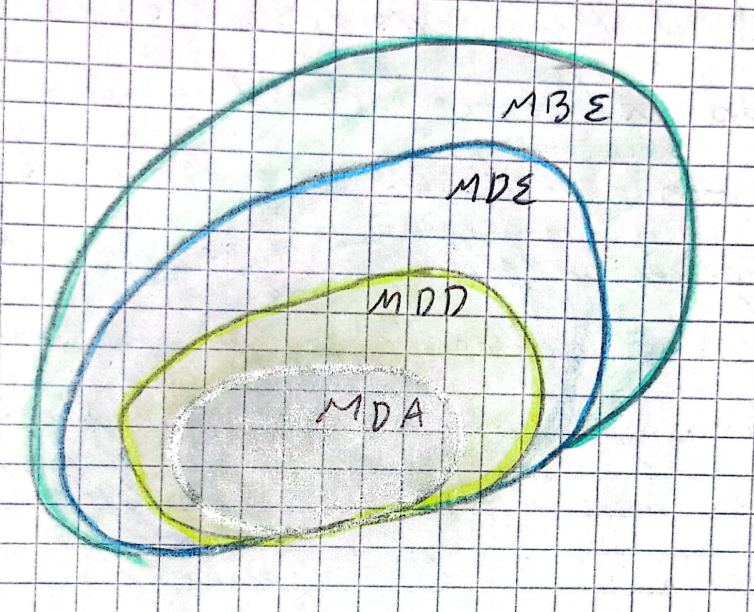 MBE
MDE
MDD
MDA